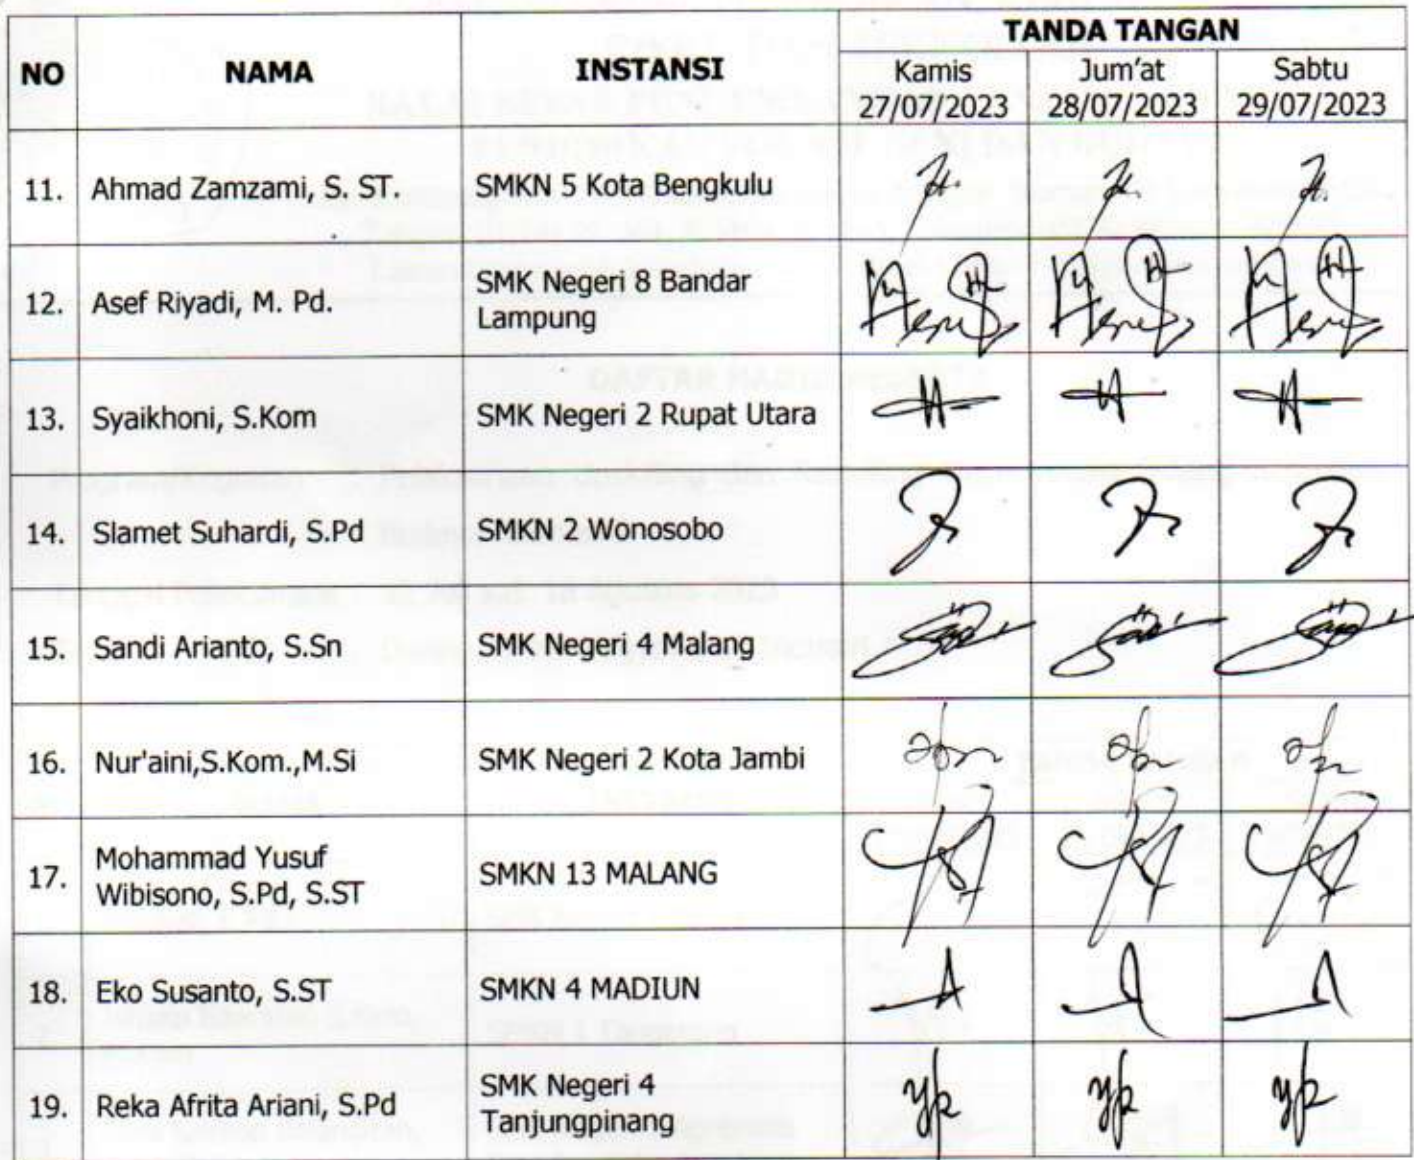 NO
NAMA
INSTANSI
TANDA TANGAN
Kamis
27/07/2023
Jum'at
28/07/2023
Sabtu
29/07/2023
11. Ahmad Zamzami, S. ST. SMKN 5 Kota Bengkulu
12. Asef Riyadi, M. Pd. SMK Negeri 8 Bandar
Lampung
13. Syaikhoni, S.Kom SMK Negeri 2 Rupat Utara
14. Slamet Suhardi, S.Pd SMKN 2 Wonosobo
15. Sandi Arianto, S.Sn SMK Negeri 4 Malang
16. Nur'aini,S.Kom.,M.Si SMK Negeri 2 Kota Jambi
17. Mohammad Yusuf
Wibisono, S.Pd, S.ST
SMKN 13 MALANG
18. Eko Susanto, S.ST SMKN 4 MADIUN
19. Reka Afrita Ariani, S.Pd SMK Negeri 4
Tanjungpinang